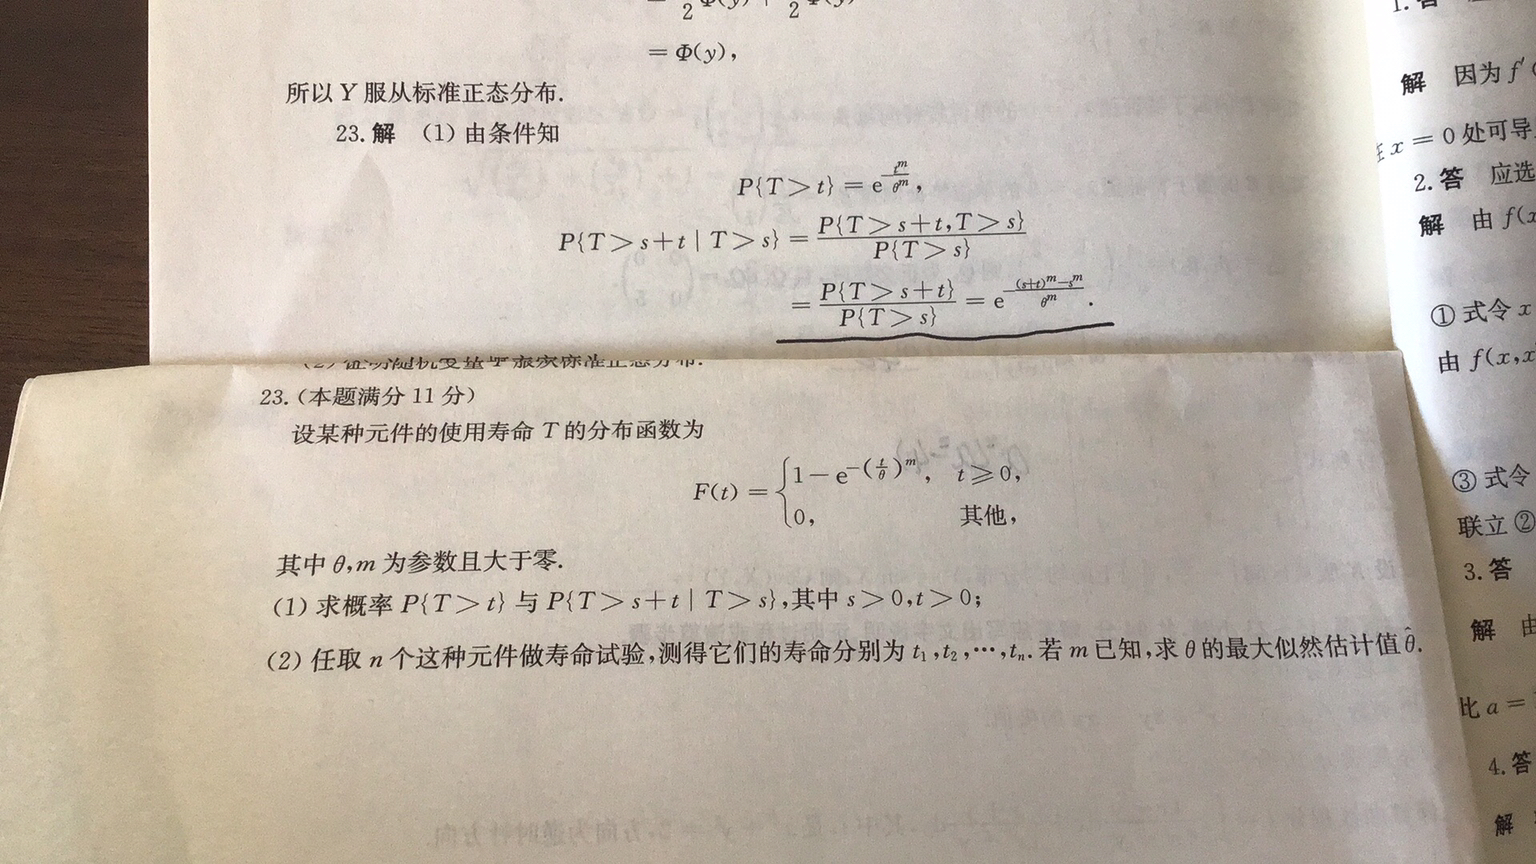 = Φ(y),
所以 Y 服从标准正态分布.
23. 解 (1) 由条件知
P{T>t} = e^{-\frac{t^m}{θ^m}},
P{T>s+t | T>s} = \frac{P{T>s+t,T>s}}{P{T>s}}
= \frac{P{T>s+t}}{P{T>s}} = e^{-\frac{(s+t)^m-s^m}{θ^m}}.
23. (本题满分 11 分)
设某种元件的使用寿命 T 的分布函数为
F(t) = { 1-e^{-(\frac{t}{θ})^m}, t⩾0,
0, 其他,
其中 θ,m 为参数且大于零.
(1) 求概率 P{T>t} 与 P{T>s+t | T>s},其中 s>0,t>0;
(2) 任取 n 个这种元件做寿命试验,测得它们的寿命分别为 t₁,t₂,⋯,tₙ. 若 m 已知,求 θ 的最大似然估计值 θ̂.
解 因为 f′(
x = 0 处可导
2. 答 应选
解 由 f(x
① 式令 x
由 f(x,x
③ 式令
联立 ②
3. 答
解 由
比 a =
4. 答
解